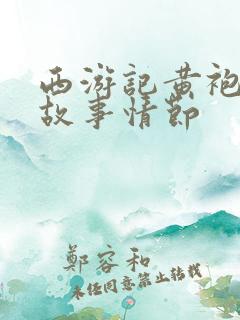 西游記黃袍
故事情節
鄭容和
未經同意禁止轉載